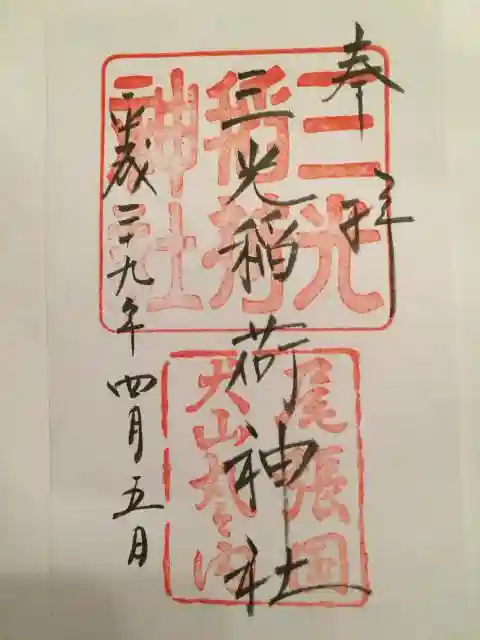 奉拝
三光稲荷神社
平成二十九年四月五日
三光
稲荷
神社
尾張国
犬山丸之内